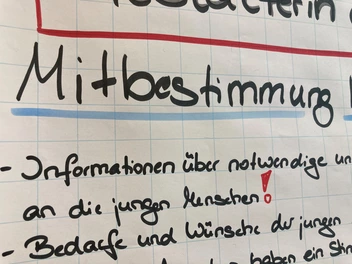 Mitbestimmung
- Informationen über notwendige un
an die jungen Menschen!
- Bedarfe und Wünsche der jungen
haben ein Stim